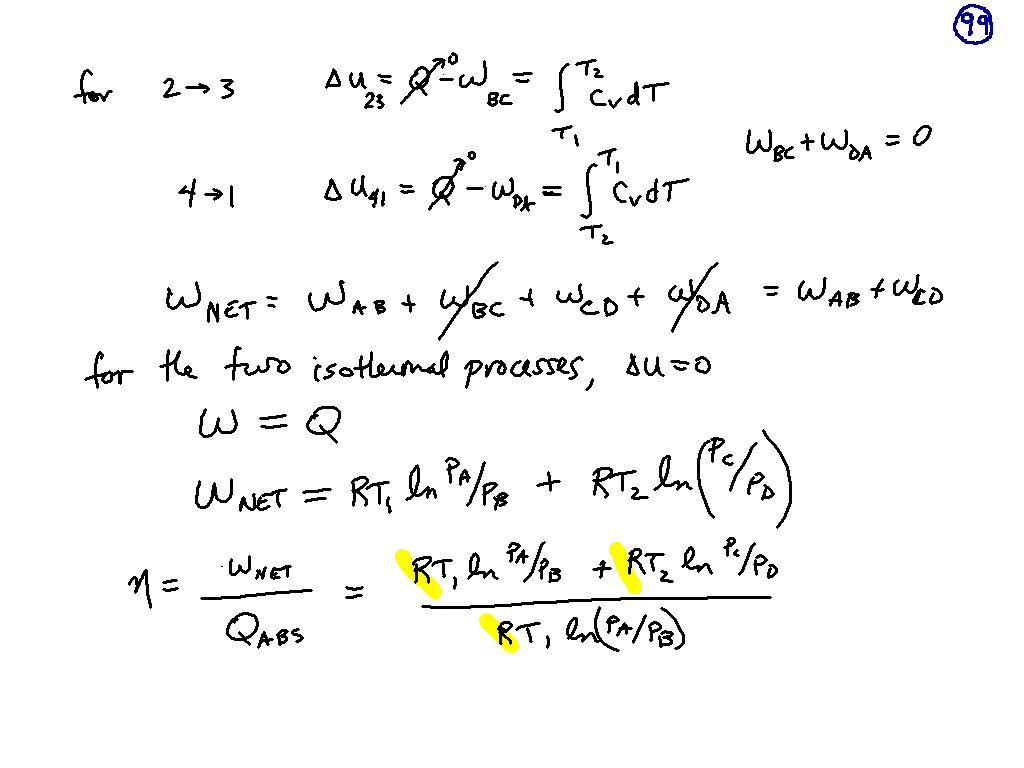 99
for 2→3 Δu₂₃ = Q↗⁰ - W_BC = ∫_T₁^T₂ C_v dT
W_BC + W_DA = 0
4→1 Δu₄₁ = Q↗⁰ - W_DA = ∫_T₂^T₁ C_v dT
W_NET = W_AB + W_BC + W_CD + W_DA = W_AB + W_CD
for the two isothermal processes, Δu = 0
W = Q
W_NET = RT₁ ln P_A/P_B + RT₂ ln(P_C/P_D)
η = W_NET / Q_ABS = (RT₁ ln P_A/P_B + RT₂ ln P_C/P_D) / (RT₁ ln(P_A/P_B))